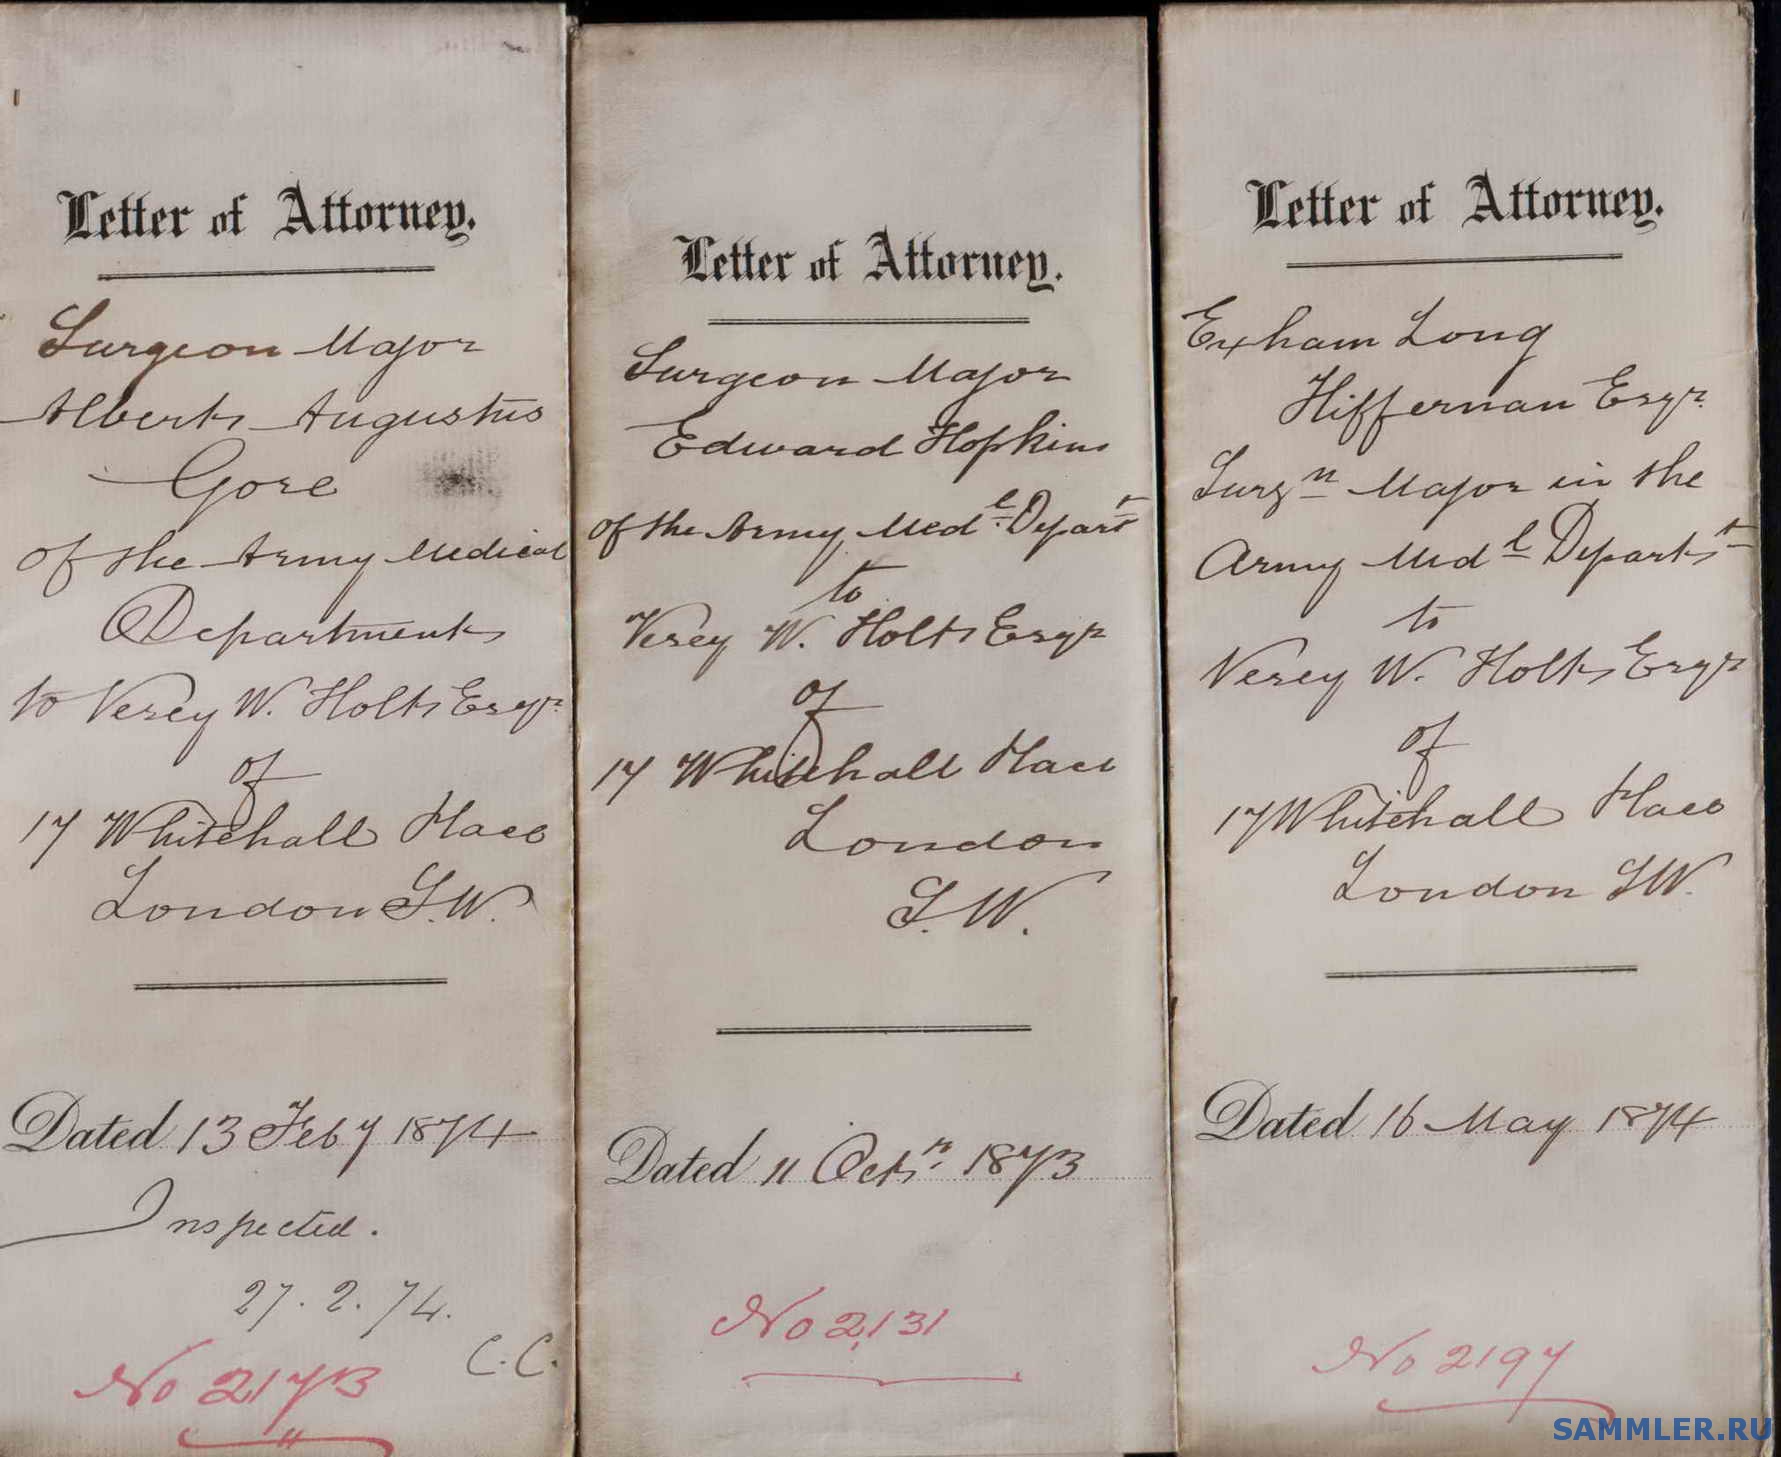 Letter of Attorney.
Surgeon Major
Albert Augustus
Gore
of the Army Medical
Department
to Vesey W. Holt Esqr.
of
17 Whitehall Place
London S.W.
Dated 13 Feby 1874
Inspected.
27.2.74.
C.C.
No 2173
Letter of Attorney.
Surgeon Major
Edward Hopkins
of the Army Medl. Depart
to
Vesey W. Holt Esqr
of
17 Whitehall Place
London
S.W.
Dated 11 Octr. 1873
No 2131
Letter of Attorney.
Exham Long
Hiffernan Esqr.
Surgn Major in the
Army Medl Departt
to
Vesey W. Holt Esqr
of
17 Whitehall Place
London SW.
Dated 16 May 1874
No 2197
SAMMLER.RU